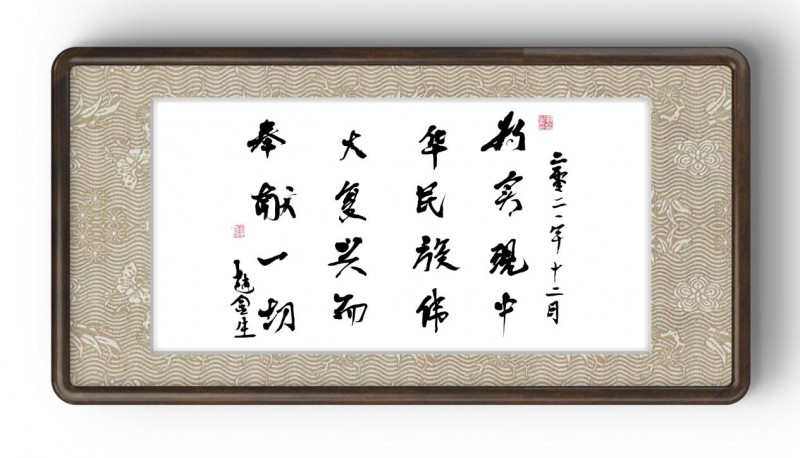 二零二一年十二月
为实现中
华民族伟
大复兴而
奉献一切
趙金生